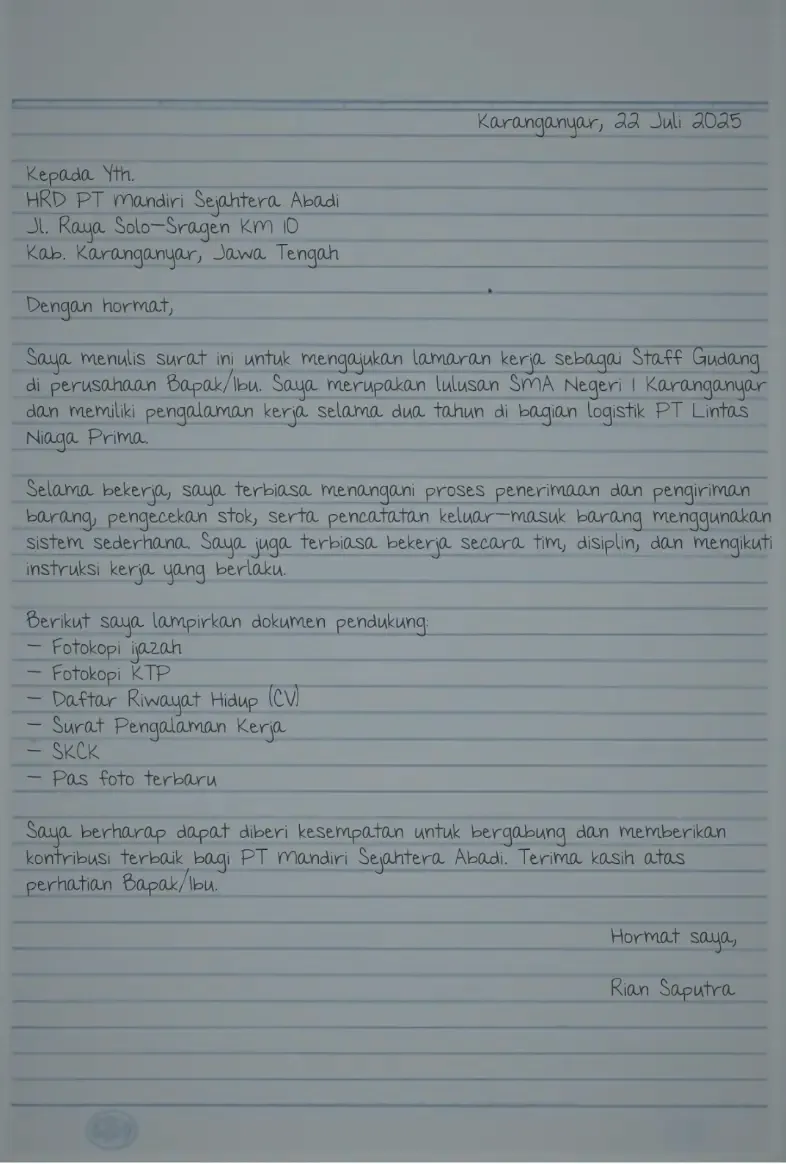 Karanganyar, 22 Juli 2025
Kepada Yth.
HRD PT Mandiri Sejahtera Abadi
Jl. Raya Solo-Sragen KM 10
Kab. Karanganyar, Jawa Tengah
Dengan hormat,
Saya menulis surat ini untuk mengajukan lamaran kerja sebagai Staff Gudang
di perusahaan Bapak/Ibu. Saya merupakan lulusan SMA Negeri 1 Karanganyar
dan memiliki pengalaman kerja selama dua tahun di bagian logistik PT Lintas
Niaga Prima.
Selama bekerja, saya terbiasa menangani proses penerimaan dan pengiriman
barang, pengecekan stok, serta pencatatan keluar-masuk barang menggunakan
sistem sederhana. Saya juga terbiasa bekerja secara tim, disiplin, dan mengikuti
instruksi kerja yang berlaku.
Berikut saya lampirkan dokumen pendukung:
- Fotokopi ijazah
- Fotokopi KTP
- Daftar Riwayat Hidup (CV)
- Surat Pengalaman Kerja
- SKCK
- Pas foto terbaru
Saya berharap dapat diberi kesempatan untuk bergabung dan memberikan
kontribusi terbaik bagi PT Mandiri Sejahtera Abadi. Terima kasih atas
perhatian Bapak/Ibu.
Hormat saya,
Rian Saputra